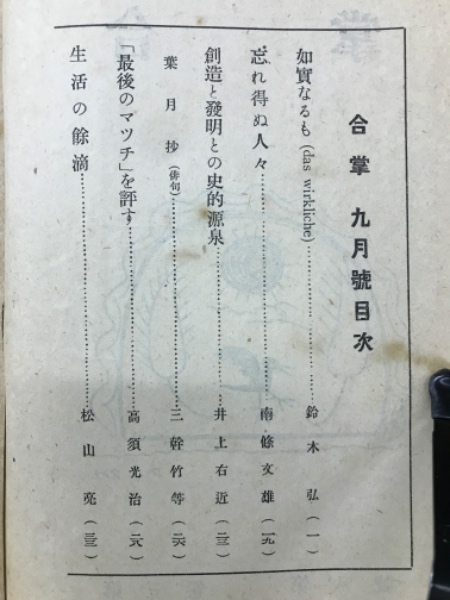 合掌 九月號目次
如實なるも(das wirkliche)……鈴木弘(一)
忘れ得ぬ人々……南條文雄(一九)
創造と發明との史的源泉……井上右近(二三)
葉月抄(俳句)……三幹竹等(二六)
「最後のマツチ」を評す……高須光治(二八)
生活の餘滴……松山亮(三三)